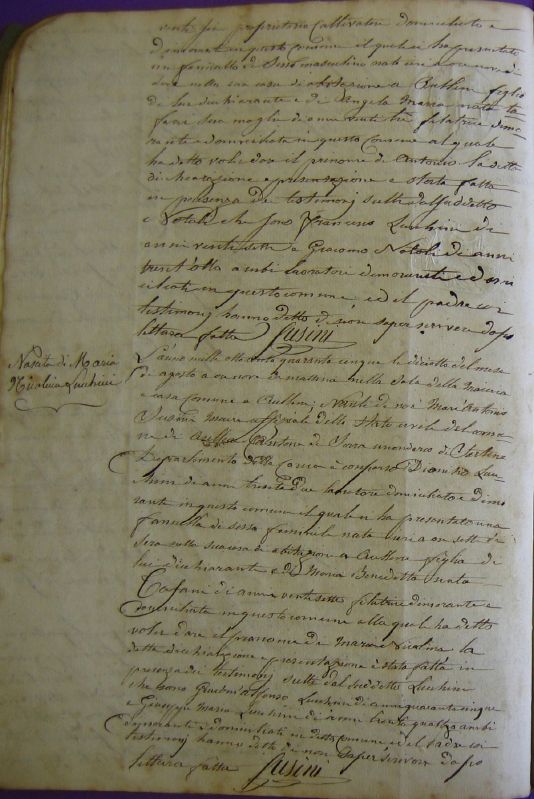 venti sei proprietario Coltivatore domiciliato e
dimorante in questo comune il quale ci ha presentato
un fanciullo di sesso mascolino nato
nella sua casa di abitazione a Aullene figlio
di lui dichiarante e di Angela Maria nata
sua moglie di anni venti tre filatrice dimo
rante e domiciliata in questo Comune al quale
ha detto voler dare il prenome di Antonio la detta
dichiarazione e presentazione è stata fatta
in presenza de testimonj
e Natali che sono Francesco Lucchini di
anni venti sette e Giacomo Natali di anni
trent'otto ambi lavoratori dimoranti e domi
ciliati in questo comune ed il padre e i
testimonj hanno detto di non saper scrivere dopo
lettura fatta Susini
Nascita di Maria
Nicolina Lucchini
L'anno mille otto cento quaranta cinque li dieciotto del mese
di agosto a ore nove di mattina nella Sala della Maieria
e casa comune a Aullene Noi Marc'Antonio
Susini Maire officiale dello Stato civile del comu-
ne di Aullene Cantone di Serra circondario di Sartene
Dipartimento della Corsica è comparso Luc-
chini di anni trenta due lavoratore domiciliato e dimo
rante in questo comune il quale ci ha presentato una
fanciulla di sesso femminile nata jeri a ore sette di
sera nella sua casa di abitazione a Aullene figlia di
lui dichiarante e di Maria Benedetta nata
Tafani di anni venti sette filatrice dimorante e
domiciliata in questo comune alla quale ha detto
voler dare il prenome di Maria Nicolina la
detta dichiarazione e presentazione è stata fatta in
presenza dei testimonj dal suddetto Lucchini
che sono Lucchini di anni quaranta cinque
e Giuseppe Maria Lucchini di anni trenta quattro ambi
dimoranti e domiciliati in detto comune ed il Padre e i
testimonj hanno detto di non saper scrivere dopo
lettura fatta Susini